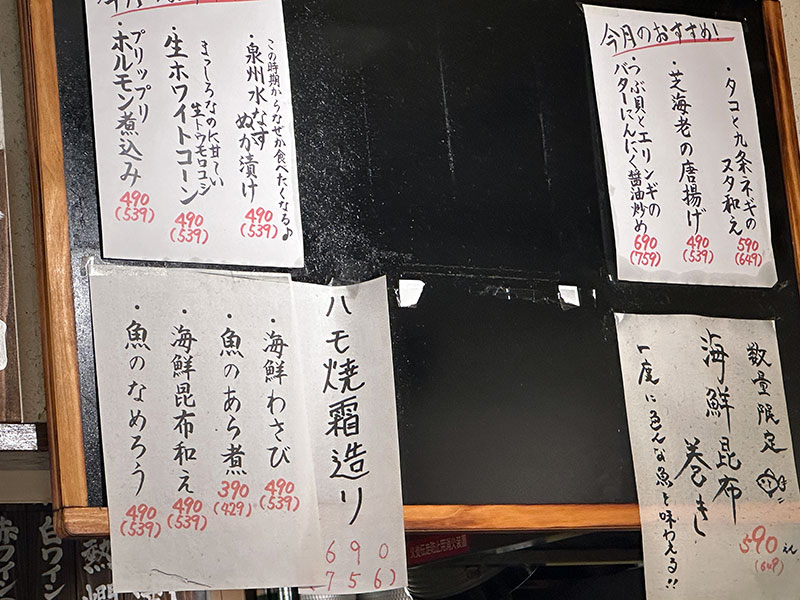 今月のおすすめ!
・タコと九条ネギの
ヌタ和え
590
(649)
・芝海老の唐揚げ
490
(539)
・つぶ貝とエリンギの
バターにんにく醤油炒め
690
(759)
この時期からなぜか食べたくなる♪
・泉州水なす
ぬか漬け
490
(539)
まっしろなのに甘ーい
生トウモロコシ
・生ホワイトコーン
490
(539)
・プリップリ
ホルモン煮込み
490
(539)
数量限定
海鮮昆布
巻きし
590えん
(649)
一度に色んな魚を味わえる!!
ハモ焼霜造り
690
(756)
・海鮮わさび
490
(539)
・魚のあら煮
390
(429)
・海鮮昆布和え
490
(539)
・魚のなめろう
490
(539)
白ワイン
赤ワイン